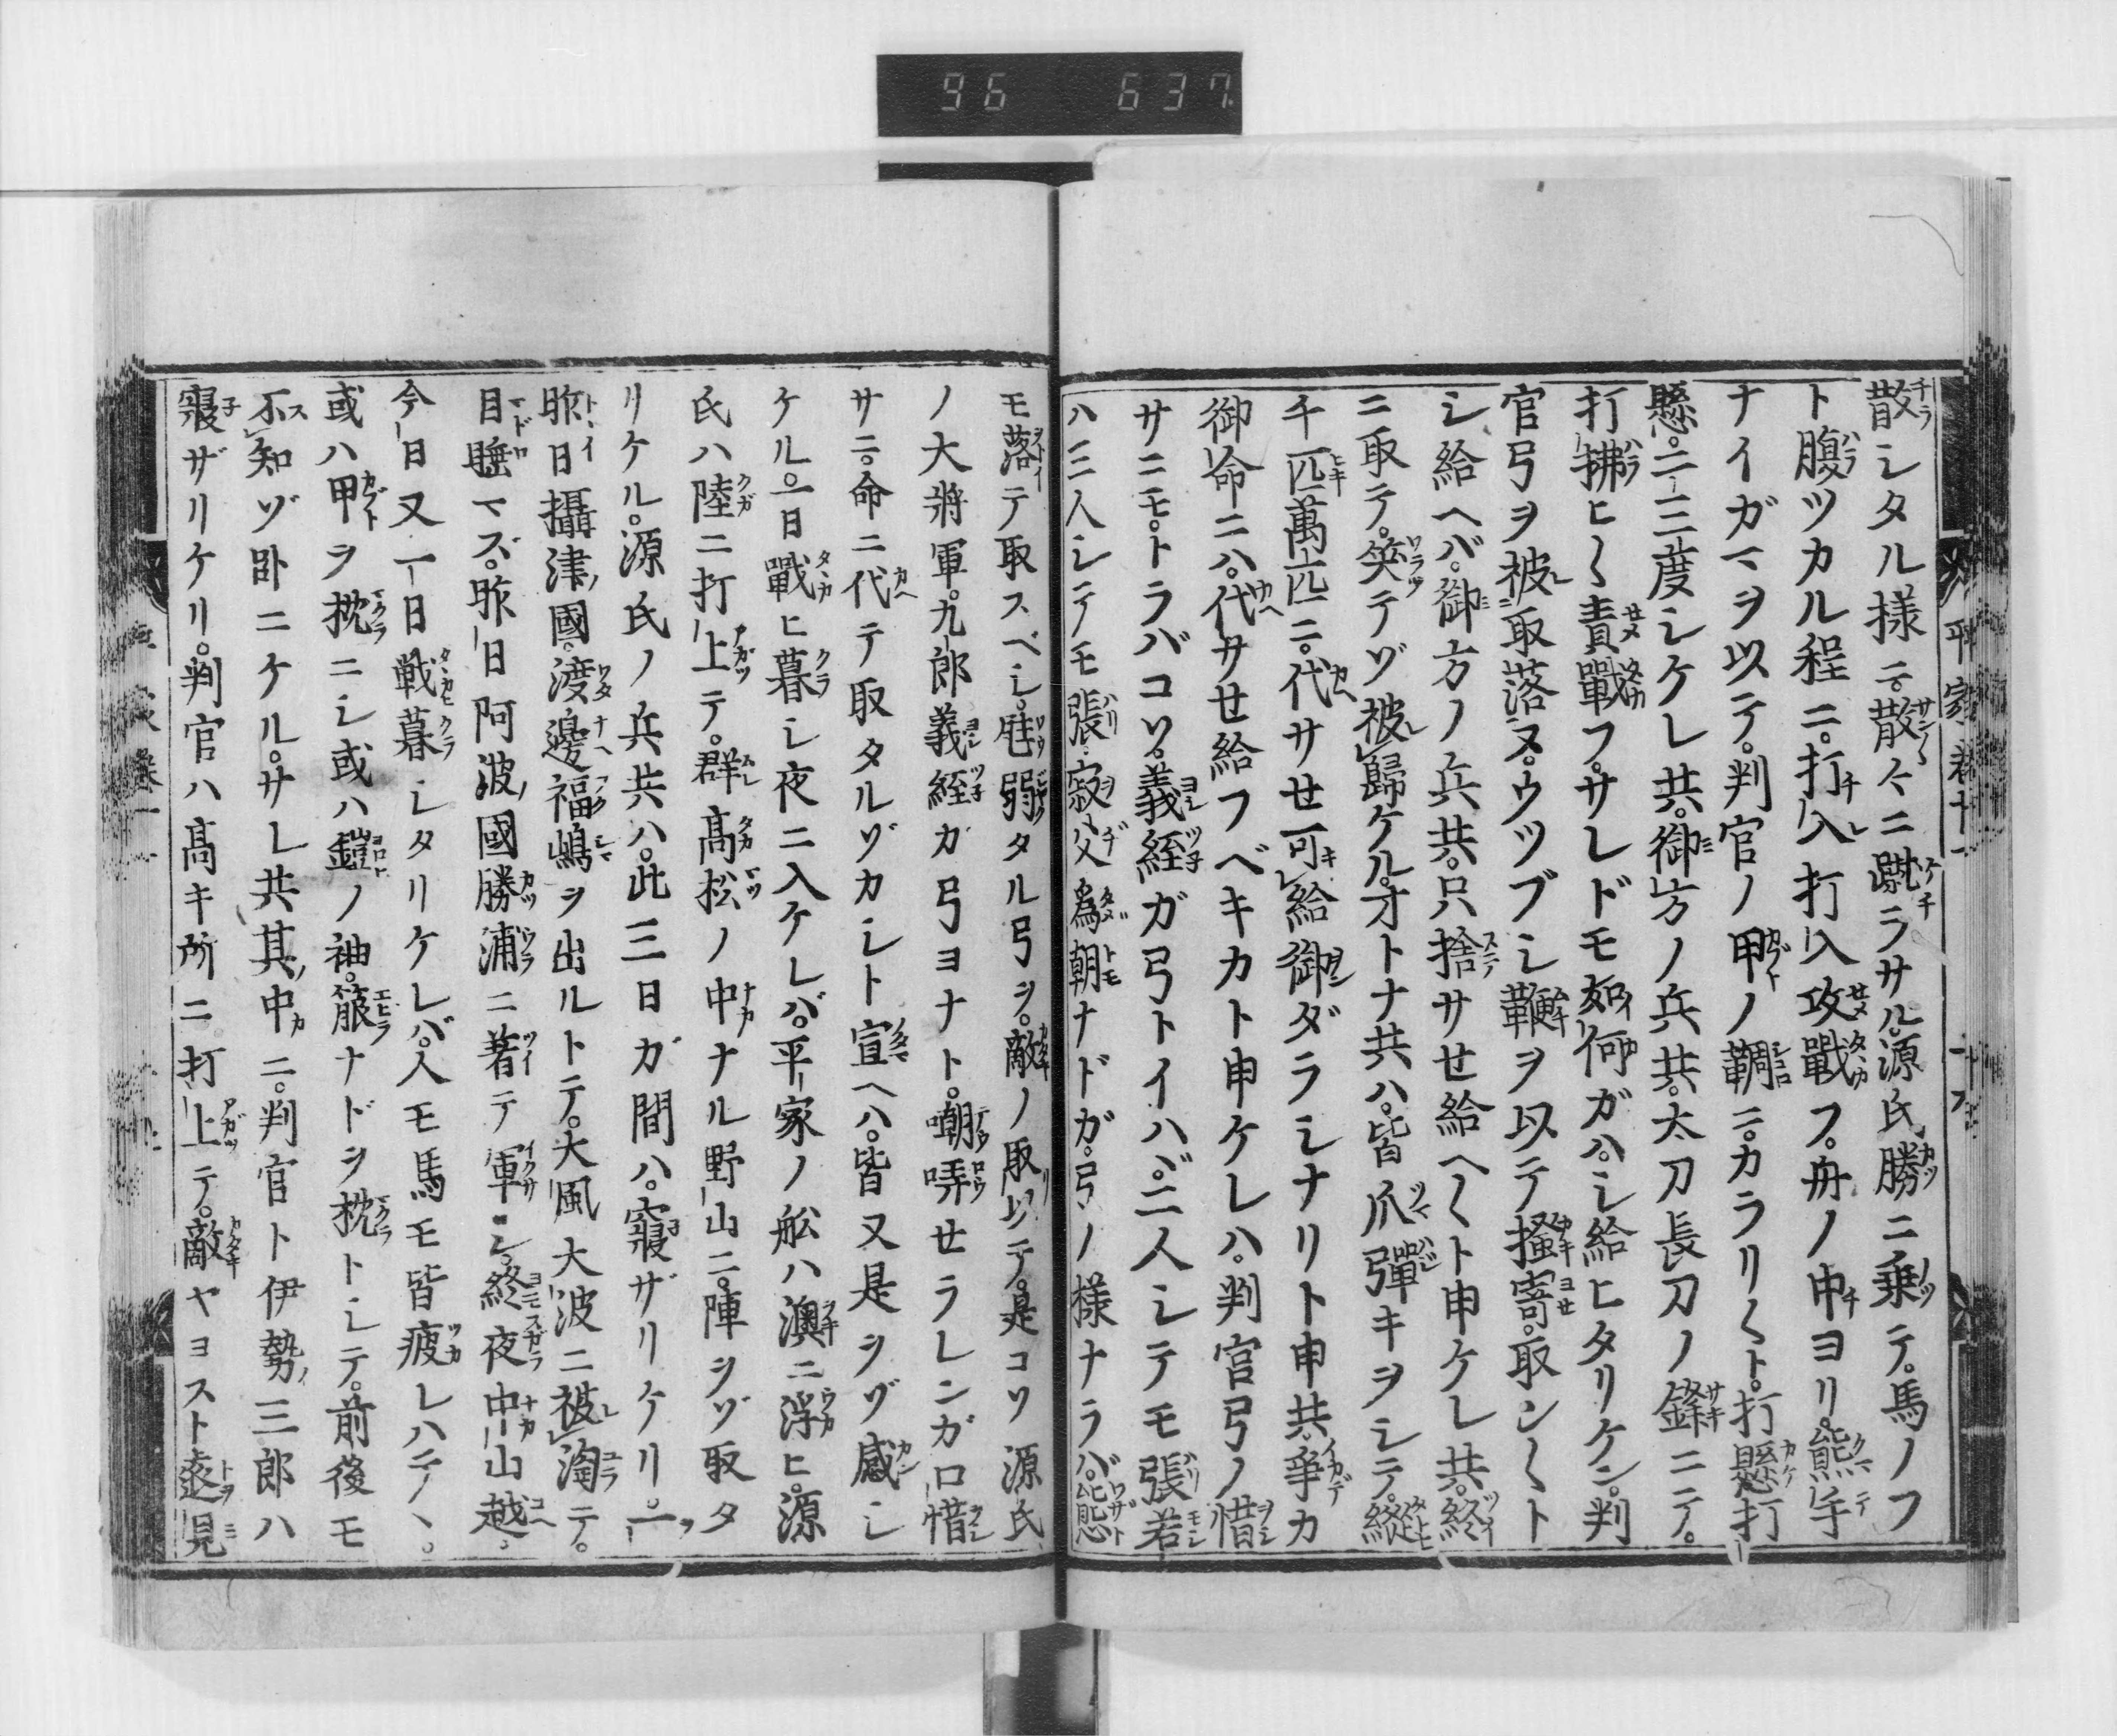 96 637
散シタル様ニ。散々ニ蹴ラサル。源氏勝ニ乗テ。馬ノフ
ト腹ツカル程ニ。打入打入攻戰フ。舟ノ中ヨリ。熊手
ナイガマヲ以テ。判官ノ甲ノ鞠ニ。カラリ〱ト。打懸打
懸。二三度シケレ共。御方ノ兵共。太刀長刀ノ鋒ニテ。
打拂ヒ〱責戰フ。サレドモ如何ガハシ給ヒタリケン。判
官弓ヲ被取落ヌ。ウツブシ鞭ヲ以テ搔寄。取ン〱ト
シ給ヘバ。御方ノ兵共。只捨サセ給ヘ〱ト申ケレ共。終
ニ取テ。笑テゾ被歸ケル。オトナ共ハ。皆爪彈キヲシテ。縱
千匹萬匹ニ。代サセ可給御ダラシナリト申共。爭カ
御命ニハ。代サセ給フベキカト申ケレハ。判官弓ノ惜
サニモ。トラバコソ。義經ガ弓トイハヾ。二人シテモ張。若
ハ三人シテモ張。寂父爲朝ナドガ。弓ノ様ナラバ。態ト
モ落テ取スベシ。尫弱タル弓ヲ。敵ノ取以テ。是コソ源氏
ノ大將軍。九郎義經ガ弓ヨナト。嘲哢せラレンガ口惜
サニ。命ニ代テ取タルゾカシト宣ヘハ。皆又是ヲゾ感シ
ケル。一日戰ヒ暮シ夜ニ入ケレバ。平家ノ舩ハ澳ニ浮ヒ。源
氏ハ陸ニ打上テ。群髙松ノ中ナル野山ニ。陣ヲゾ取タ
リケル。源氏ノ兵共ハ。此三日ガ間ハ。寢ザリケリ。一
昨日攝津國。渡邊福嶋ヲ出ルトテ。大風大波ニ被淘テ。
目睡マズ。昨日阿波國勝浦ニ著テ軍シ。終夜中山越。
今日又一日戦暮シタリケレバ。人モ馬モ皆疲レハテヽ。
或ハ甲ヲ枕ニシ或ハ鎧ノ袖。箙ナドヲ枕トシテ。前後モ
不知ゾ臥ニケル。サレ共其中ニ。判官ト伊勢三郎ハ
寢ザリケリ。判官ハ髙キ所ニ打上テ。敵ヤヨスト遠見